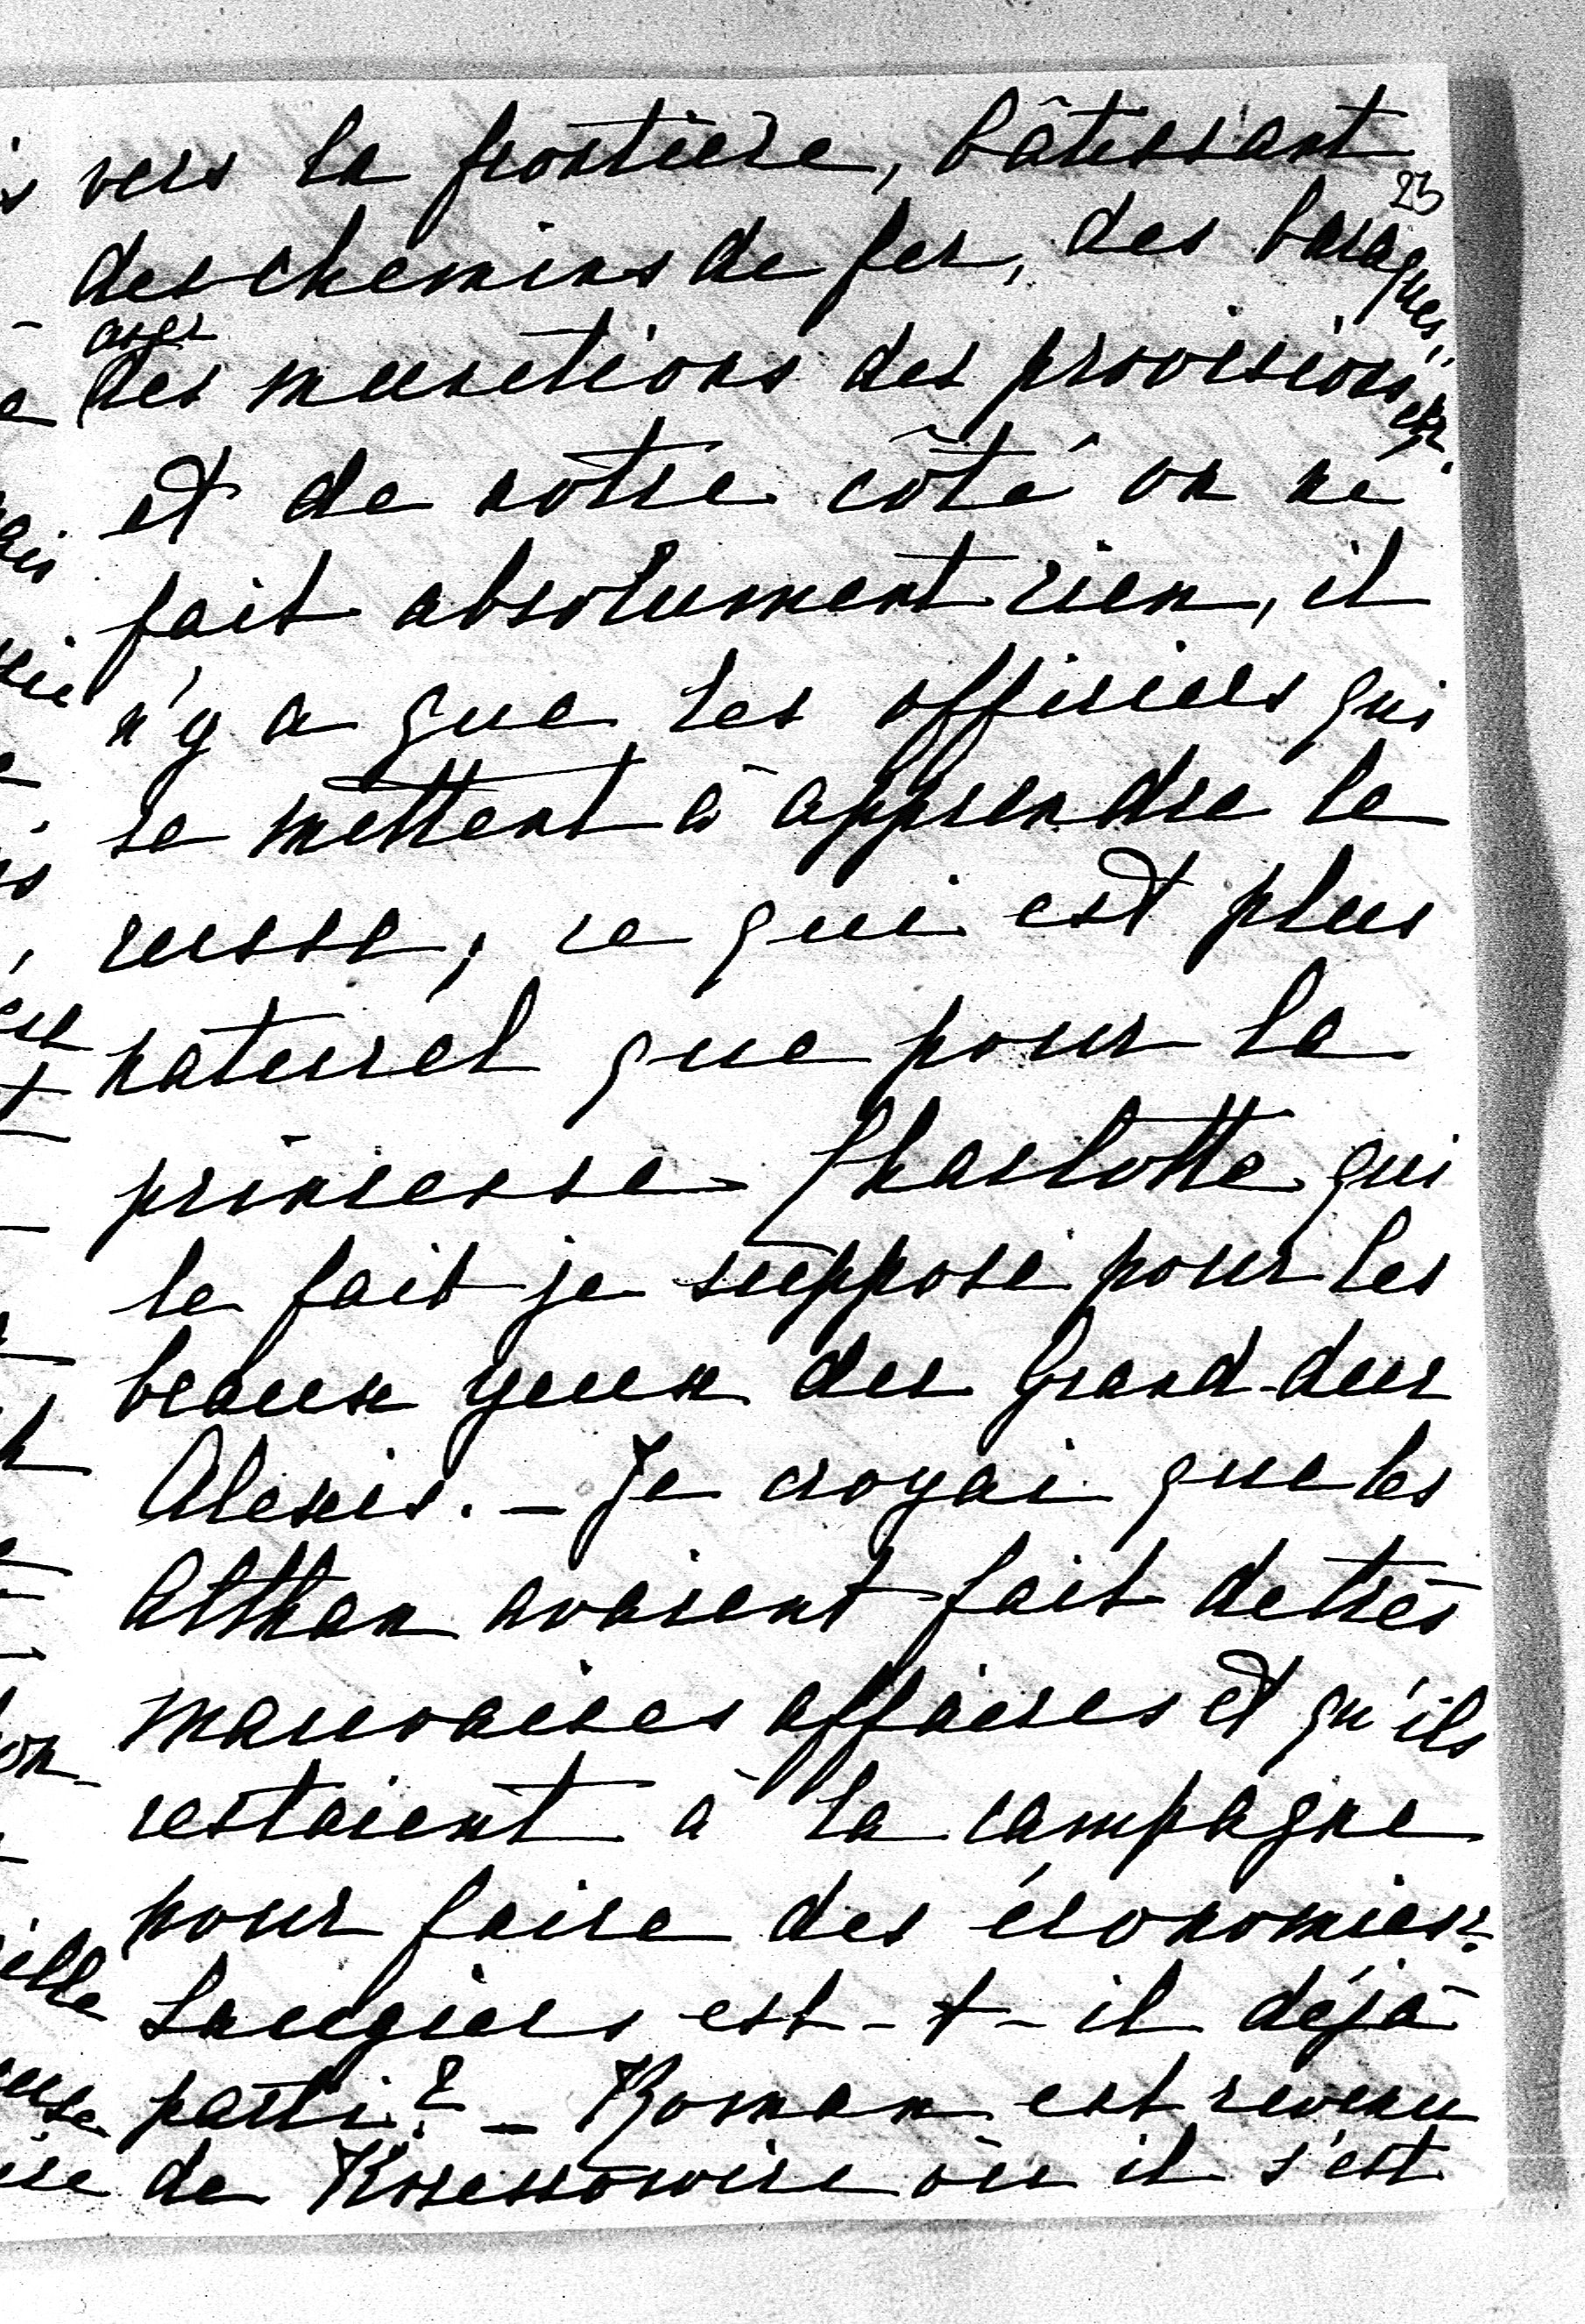 vers la frontière, bâtissant
23
des chemins de fer, des baraques,
avec
des munitions des provisions etz.
et de notre côté on ne
fait absolument rien, il
n'y a que les officiers qui
se mettent à apprendre le
russe, ce qui est plus
naturel que pour la
princesse Charlotte qui
le fait je suppose pour les
beaux yeux du Grand-duc
Alexis. – Je croyai que les
Althan avaient fait de très
mauvaises affaires et qu'ils
restaient à la campagne
pour faire des économies?
Laugiers est-t-il déjà
parti? – Roman est revenu
de où il s'est